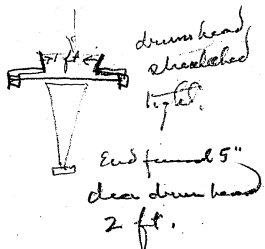 1 ft
drumhead
stretched
tight.
End funnel 5"
dia drumhead
2 ft.